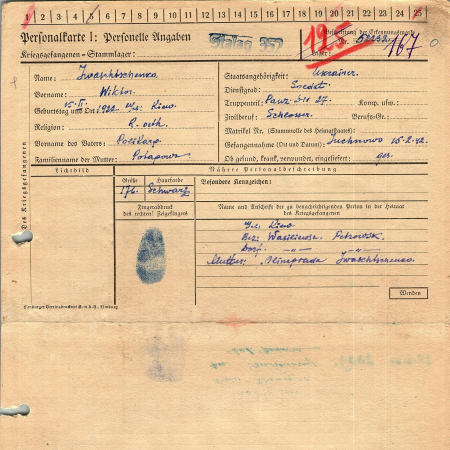 1 2 3 4 5 6 7 8 9 10 11 12 13 14 15 16 17 18 19 20 21 22 23 24 25
Personalkarte I: Personelle Angaben
Kriegsgefangenen-Stammlager: Stalag 357
Beschriftung der Erkennungsmarke
Nr.
Lager:
125
Des Kriegsgefangenen
Name: Iwaschtschenko
Vorname: Wiktor
Geburtstag und Ort: 15.II. 1922 Kiew
Religion: R. orth.
Vorname des Vaters: Polikarp
Familienname der Mutter: Potapowa
Staatsangehörigkeit: Ukrainer
Dienstgrad: Soldat
Truppenteil: 27. Komp. usw.:
Zivilberuf: Schlosser Berufs-Gr.:
Matrikel Nr. (Stammrolle des Heimatstaates):
Gefangennahme (Ort und Datum): Juchnowo 15.2.42
Ob gesund, krank, verwundet, eingeliefert: ges.
Lichtbild
Nähere Personalbeschreibung
Größe Haarfarbe
176 Schwarz
Besondere Kennzeichen:
Fingerabdruck
des rechten! Zeigefingers
Name und Anschrift der zu benachrichtigenden Person in der Heimat
des Kriegsgefangenen
Kiew
Petrowsk.
Dorf —„— —„—
Mutter: Iwaschtschenko
Wenden